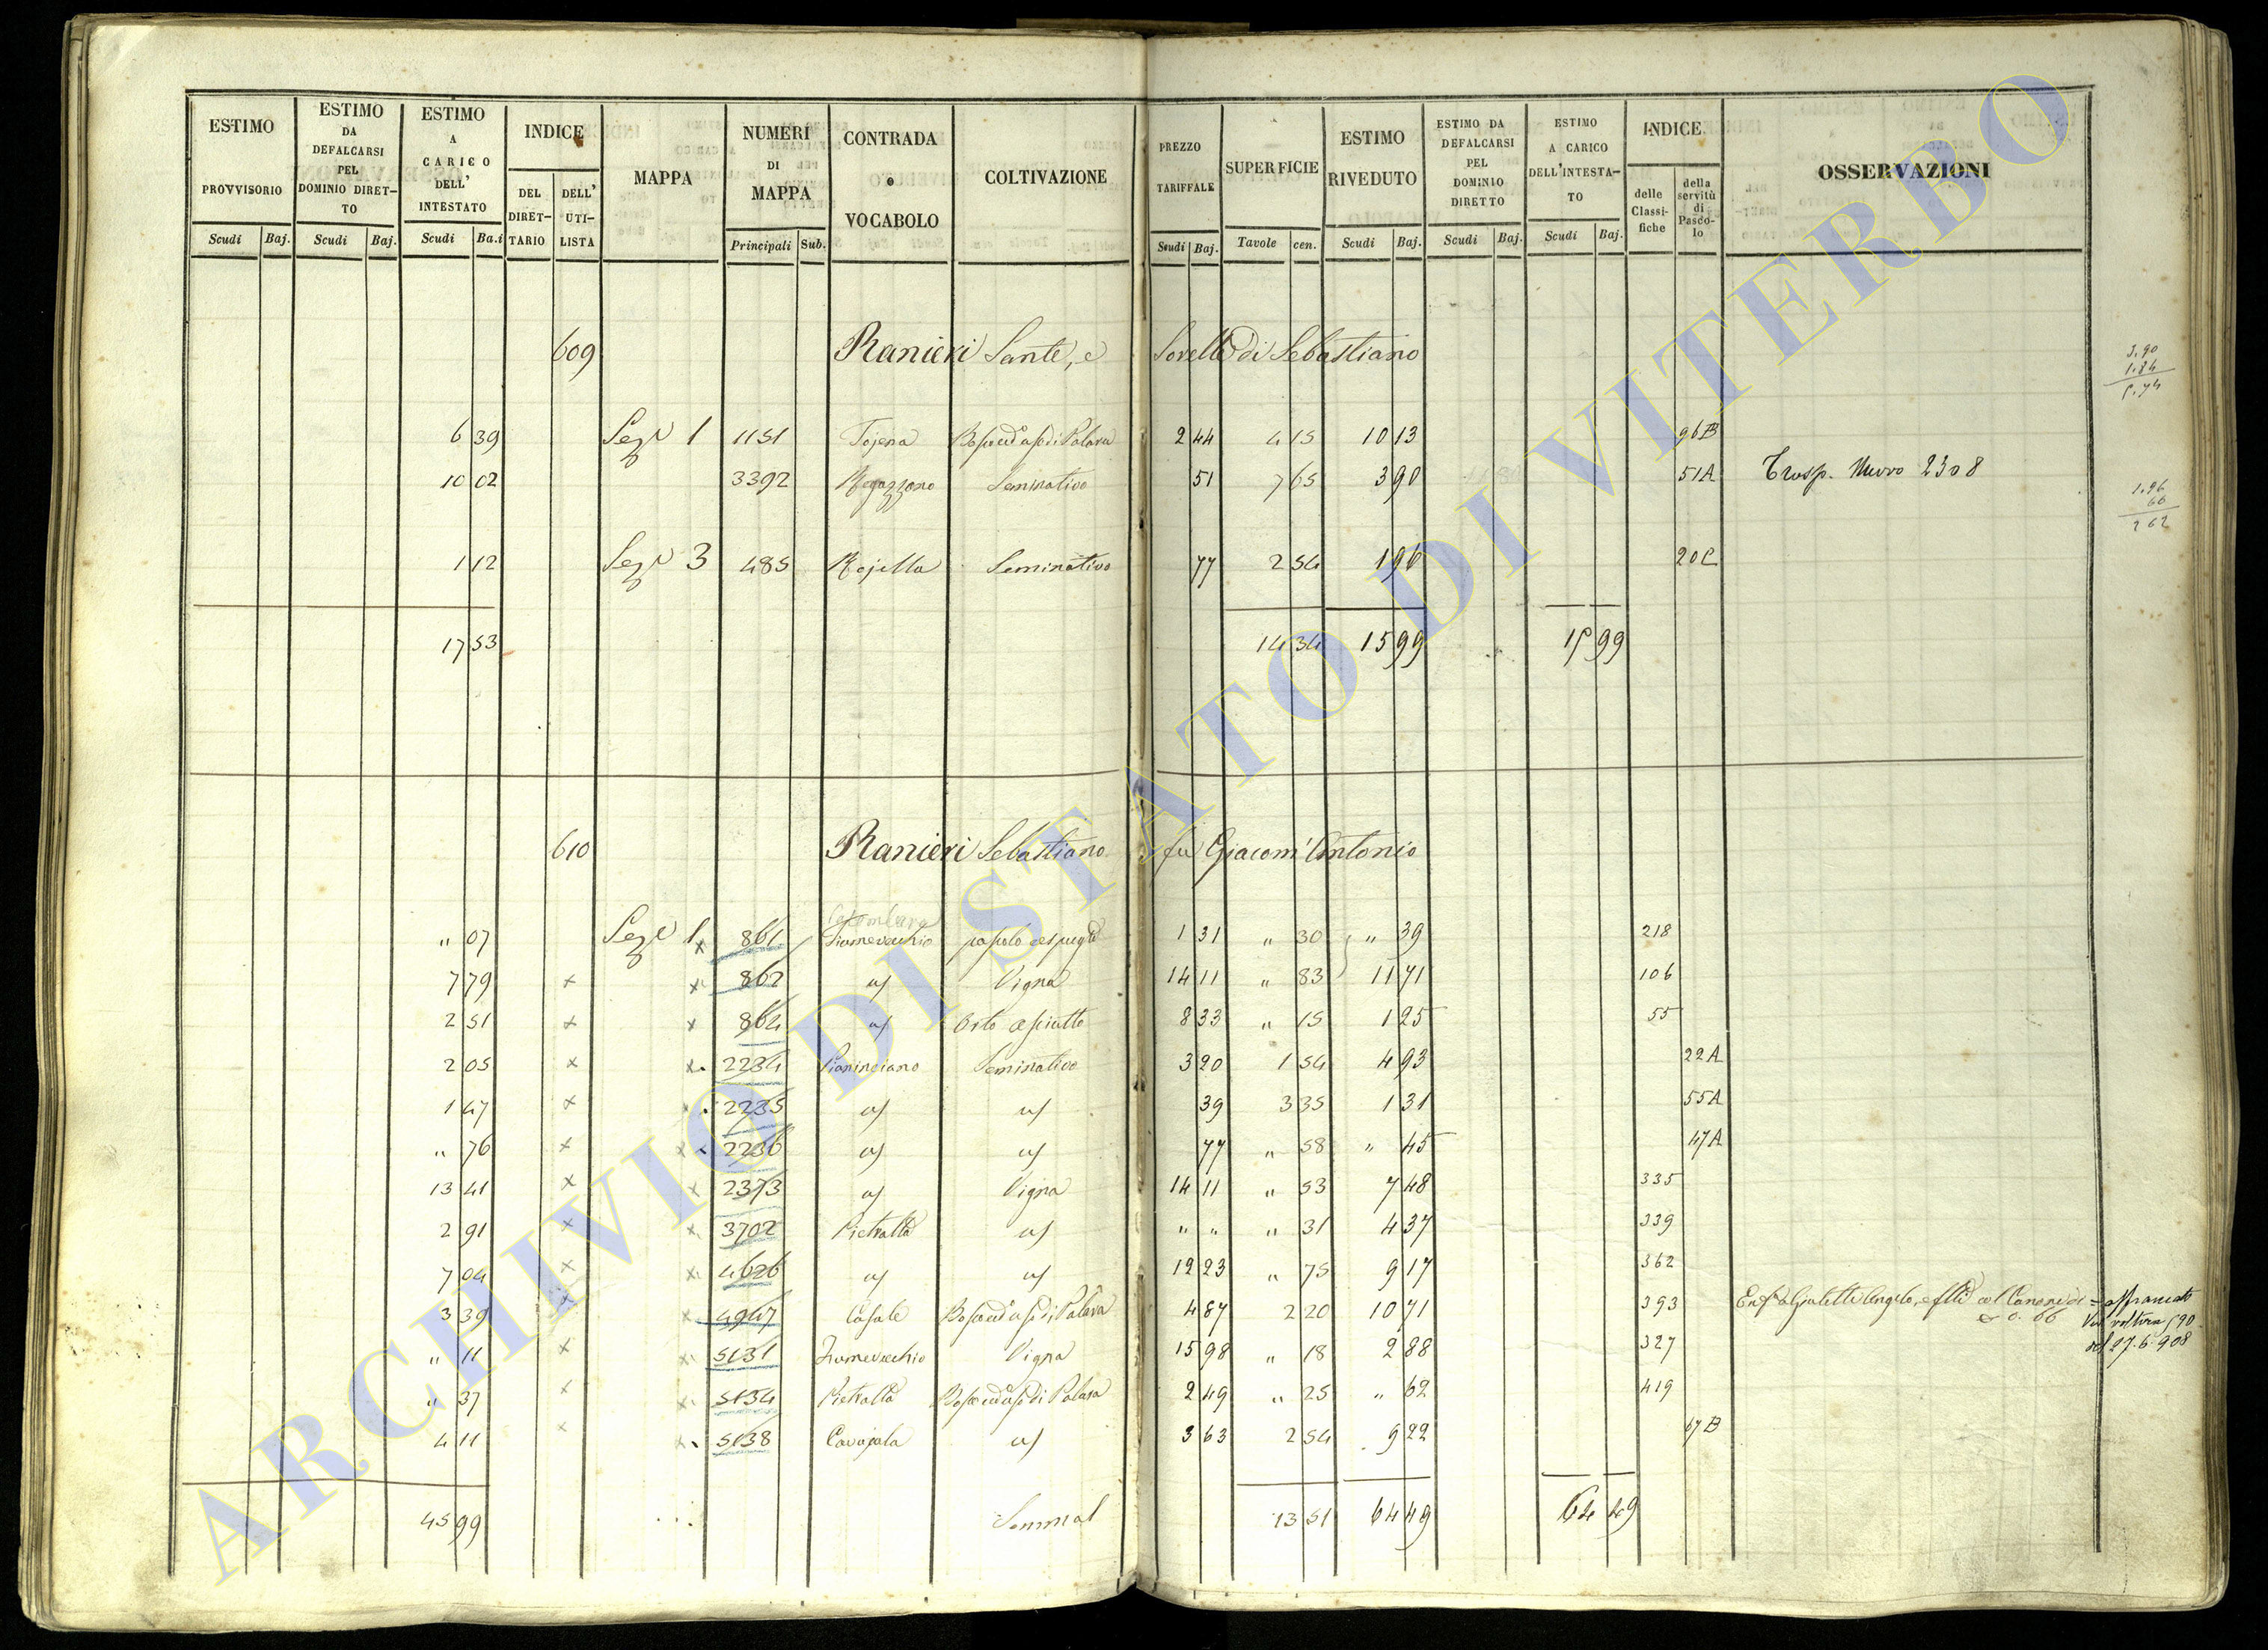 ESTIMO PROVVISORIO Scudi Baj.
ESTIMO DA DEFALCARSI PEL DOMINIO DIRETTO Scudi Baj.
ESTIMO A CARICO DELL' INTESTATO Scudi Ba.i
INDICE DEL DIRETTARIO DELL' UTILISTA
MAPPA
NUMERI DI MAPPA Principali Sub.
CONTRADA o VOCABOLO
COLTIVAZIONE
PREZZO TARIFFALE Scudi Baj.
SUPERFICIE Tavole cen.
ESTIMO RIVEDUTO Scudi Baj.
ESTIMO DA DEFALCARSI PEL DOMINIO DIRETTO Scudi Baj.
ESTIMO A CARICO DELL'INTESTATO Scudi Baj.
INDICE delle Classifiche della servitù di Pascolo
OSSERVAZIONI
609 Ranieri Sante, e Sorelle di Sebastiano
3.90
1.84
5.74
6 39 Sez.e 1 1151 Tojena 2 44 4 15 10 13 96B
10 02 3392 Ragazzano Seminativo 51 7 65 3 90 51A Trasp. Nuovo 2308
1.96
66
2 62
1 12 Sez.e 3 485 Rojella Seminativo 77 2 54 1 96 20C
17 53 14 34 15 99 15 99
610 Ranieri Sebastiano fu Giacom'Antonio
Colombara
" 07 Sez.e 1 x 861 Fiumevecchio pascolo cespuglio 1 31 " 30 " 39 218
7 79 x x 862 a/ Vigna 14 11 " 83 11 71 106
2 51 x x 864 a/ Orto asciutto 8 33 " 15 1 25 55
2 05 x x 2234 Pianinciano Seminativo 3 20 1 54 4 93 22A
1 47 x x 2235 a/ a/ 39 3 35 1 31 55A
" 76 x x 2236 a/ a/ 77 " 58 " 45 47A
13 41 x x 2373 a/ Vigna 14 11 " 53 7 48 335
2 91 x x 3702 Pietratta a/ " " " 31 4 37 339
7 04 x x 4626 a/ a/ 12 23 " 75 9 17 362
3 39 x x 4947 Casale 4 87 2 20 10 71 393 Angelo, col Canone di 0.66 = affrancato
voltura 590
del 27.6.908
" 11 x x 5131 Fiumevecchio Vigna 15 98 " 18 2 88 327
" 37 x x 5134 Pietratta 2 49 " 25 " 62 419
4 11 x x 5138 Cavajola a/ 3 63 2 54 9 22 67B
45 99 13 51 64 49 64 49
ARCHIVIO DI STATO DI VITERBO